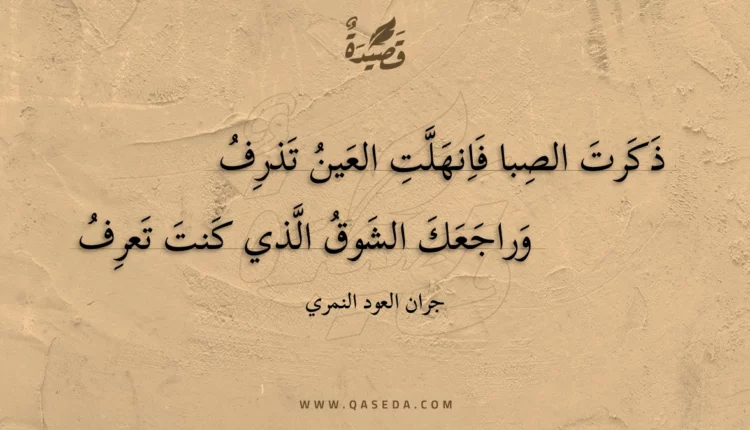 قَصِيدَةٌ
ذَكَرتَ الصِبا فَاِنهَلَّتِ العَينُ تَذرِفُ
وَراجَعَكَ الشَوقُ الَّذي كَنتَ تَعرِفُ
جران العود النمري
WWW.QASEDA.COM